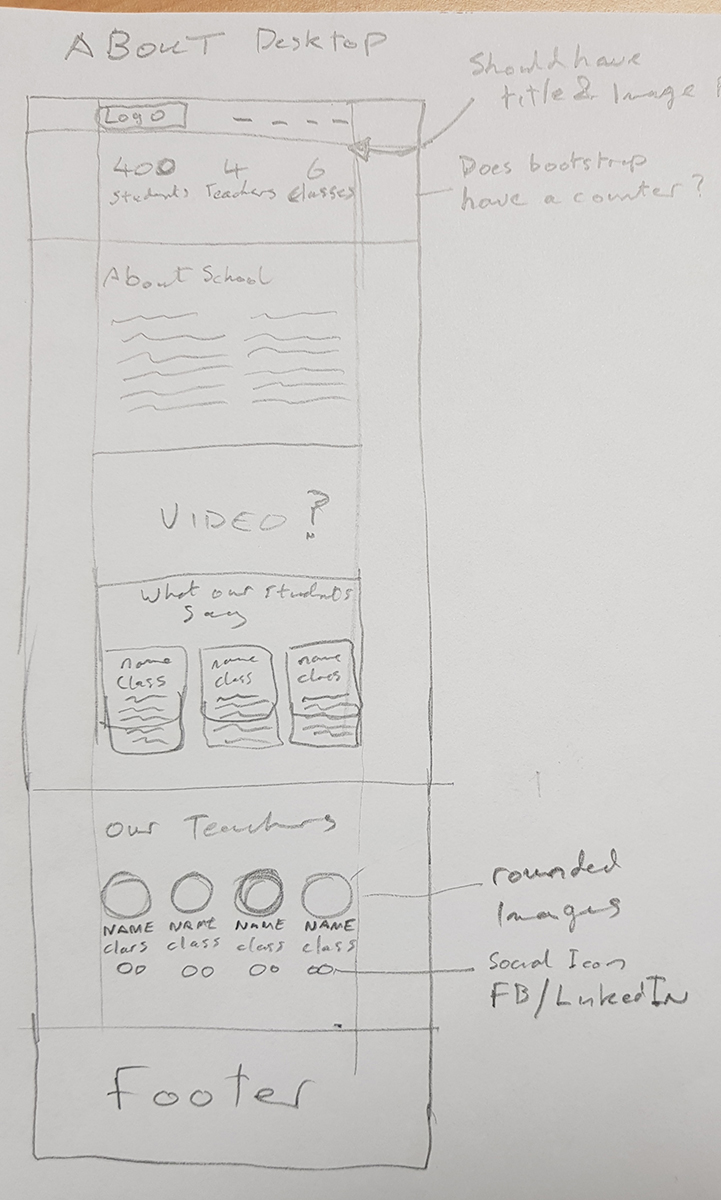 ABOUT Desktop
Should have
title & Image
Logo
400 4 6
Students Teachers Classes
Does bootstrap
have a counter?
About School
VIDEO ?
What our students
Say
name name name
Class class class
Our Teachers
NAME NAME NAME NAME
class class class class
rounded
Images
Social Icon
FB/LinkedIn
Footer